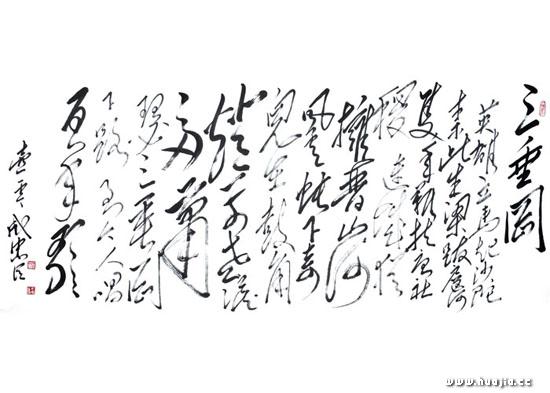 三垂岡
英雄立馬起沙陀
奈此朱梁跋扈何
隻手難扶唐社
稷連城猶
擁晉山河
風雲帳下奇
兒在鼓角
燈前老淚
多蕭
瑟三垂岡
下路至今人唱
百年歌
www.huajia.cc